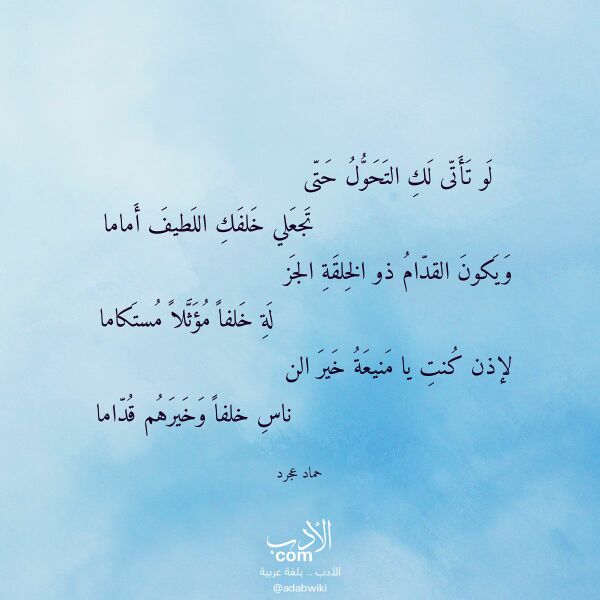 لَو تَأَتّى لَكِ التَحَوُّلُ حَتّى
تَجعَلي خَلفَكِ اللَطيفَ أَماما
وَيَكونَ القدّامُ ذو الخِلقَةِ الجَز
لَةِ خَلفاً مُؤَثَّلاً مُستَكاما
لإذن كُنتِ يا مَنيعَةُ خَيرَ الن
ناسِ خلفاً وَخَيرَهُم قُدّاما
حماد عجرد
الأدب
com
الأدب .. بلغة عربية
@adabwiki